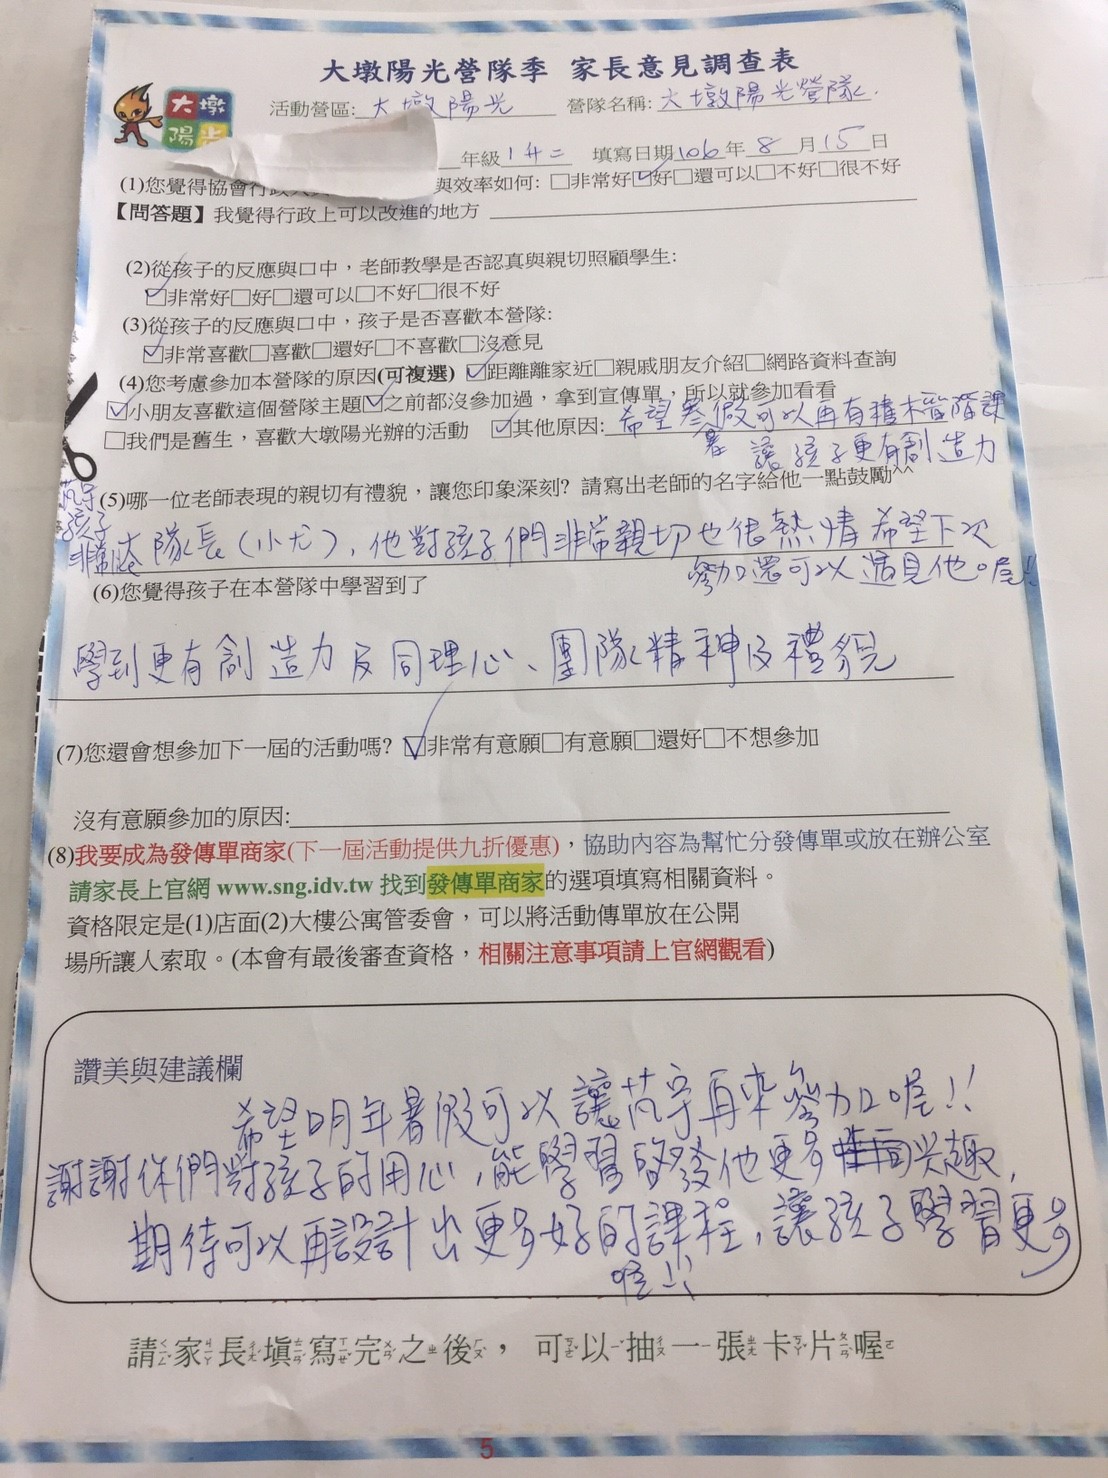 大墩陽光營隊季 家長意見調查表
大墩
陽光
活動營區: 大墩陽光 營隊名稱: 大墩陽光營隊
年級1升二 填寫日期106年8月15日
(1)您覺得協會行政人 與效率如何: □非常好☑好□還可以□不好□很不好
【問答題】我覺得行政上可以改進的地方
(2)從孩子的反應與口中，老師教學是否認真與親切照顧學生:
☑非常好□好□還可以□不好□很不好
(3)從孩子的反應與口中，孩子是否喜歡本營隊:
☑非常喜歡□喜歡□還好□不喜歡□沒意見
(4)您考慮參加本營隊的原因(可複選) ☑距離離家近□親戚朋友介紹□網路資料查詢
☑小朋友喜歡這個營隊主題☑之前都沒參加過，拿到宣傳單，所以就參加看看
□我們是舊生，喜歡大墩陽光辦的活動 ☑其他原因: 希望寒假可以再有積木 階課
暑 讓孩子更有創造力
(5)哪一位老師表現的親切有禮貌，讓您印象深刻? 請寫出老師的名字給他一點鼓勵^^
芃宇
孩子
非常
隊長(小尤)，他對孩子們非常親切也很熱情希望下次
參加還可以遇見他。喔!!
(6)您覺得孩子在本營隊中學習到了
學到更有創造力及同理心、團隊精神及禮貌
(7)您還會想參加下一屆的活動嗎? ☑非常有意願□有意願□還好□不想參加
沒有意願參加的原因:
(8)我要成為發傳單商家(下一屆活動提供九折優惠)，協助內容為幫忙分發傳單或放在辦公室
請家長上官網 www.sng.idv.tw 找到發傳單商家的選項填寫相關資料。
資格限定是(1)店面(2)大樓公寓管委會，可以將活動傳單放在公開
場所讓人索取。(本會有最後審查資格，相關注意事項請上官網觀看)
讚美與建議欄
希望明年暑假可以讓芃宇再來參加喔!!
謝謝你們對孩子的用心，能學習啓發他更多興趣，
期待可以再設計出更多好的課程，讓孩子學習更多
喔!!
請家長填寫完之後，可以抽一張卡片喔
5